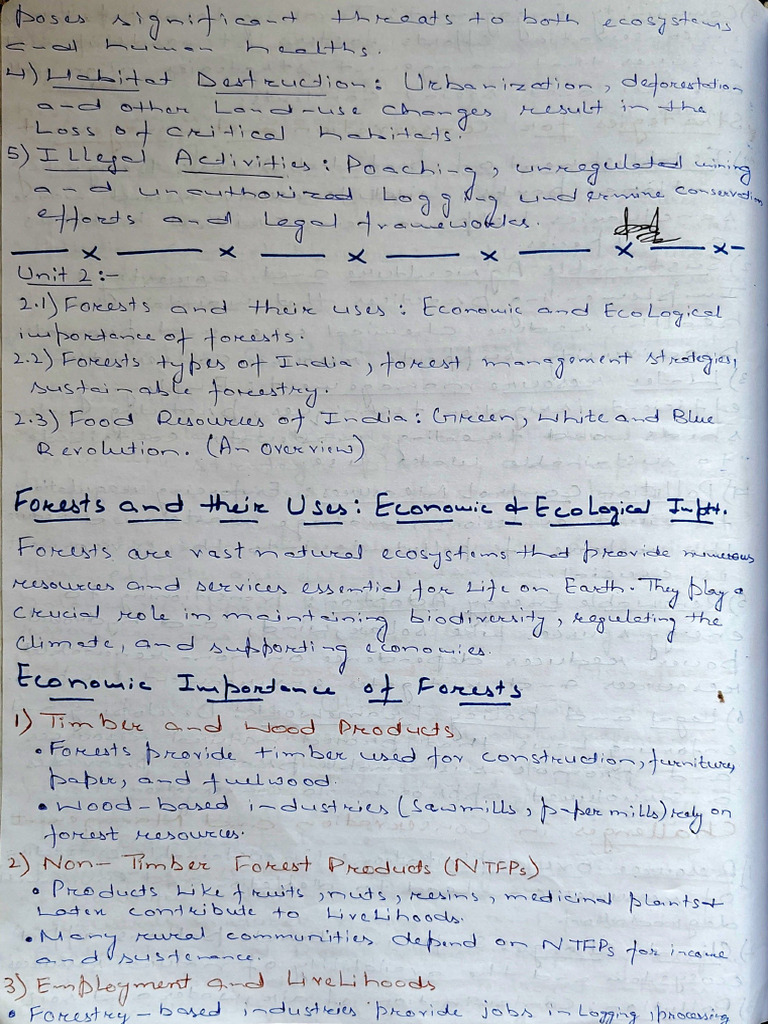 poses significant threats to both ecosystems
and human healths.
4) Habitat Destruction: Urbanization, deforestation
and other Land-use changes result in the
Loss of critical habitats.
5) Illegal Activities: Poaching, unregulated mining
and unauthorized Logging undermine conservation
efforts and Legal frameworks.
Unit 2:-
2.1) Forests and their uses: Economic and Ecological
importance of forests.
2.2) Forests types of India, forest management strategies,
sustainable forestry.
2.3) Food Resources of India: Green, White and Blue
Revolution. (An Overview)
Forests and their Uses: Economic & Ecological Impt.
Forests are vast natural ecosystems that provide numerous
resources and services essential for Life on Earth. They play a
crucial role in maintaining biodiversity, regulating the
climate, and supporting economies.
Economic Importance of Forests
1) Timber and Wood Products
• Forests provide timber used for construction, furniture,
paper, and fuelwood.
• Wood-based industries (Sawmills, paper mills) rely on
forest resources.
2) Non-Timber Forest Products (NTFPs)
• Products Like fruits, nuts, resins, medicinal plants &
Latex contribute to LiveLihoods.
• Many rural communities depend on NTFPs for income
and sustenance.
3) Employment and LiveLihoods
• Forestry-based industries provide jobs in Logging, processing